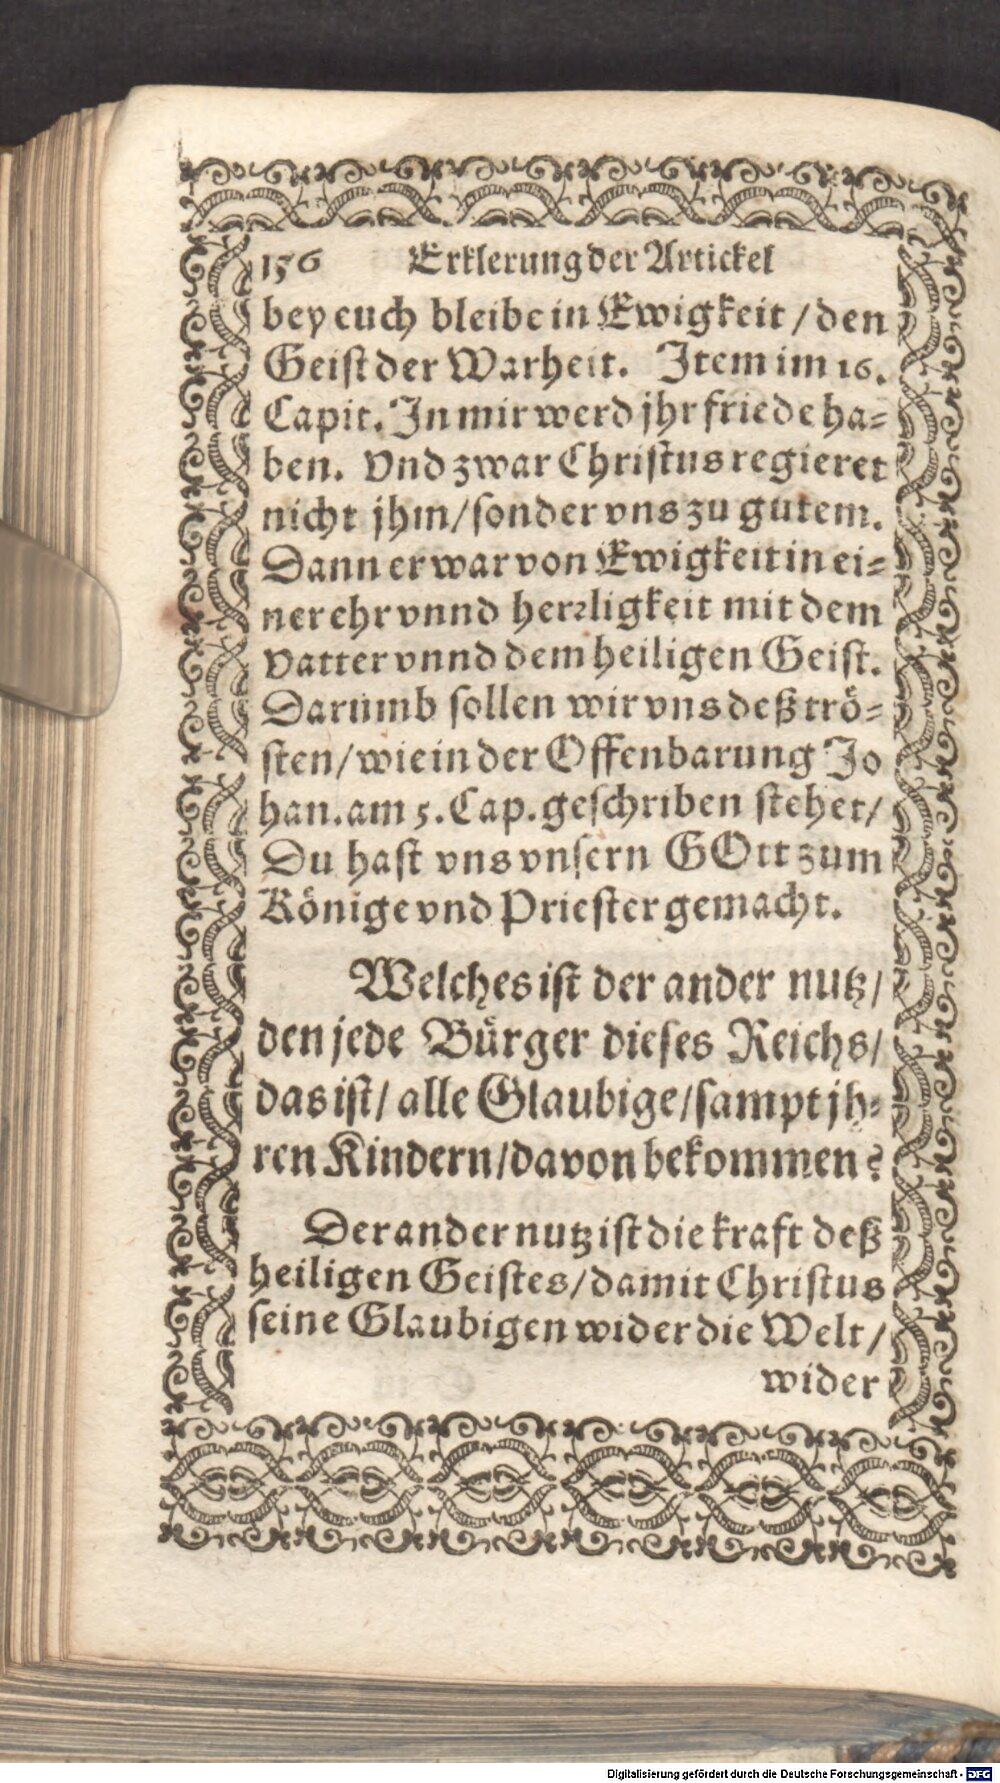 156 Erklerung der Artickel
bey euch bleibe in Ewigkeit / den
Geist der Warheit. Item im 16.
Capit. In mir werd jhr friede ha-
ben. Vnd zwar Christus regieret
nicht jhm / sonder vns zu gutem.
Dann er war von Ewigkeit in ei-
ner ehr vnnd herrligkeit mit dem
Vatter vnnd dem heiligen Geist.
Darumb sollen wir vns deß trö-
sten / wie in der Offenbarung Jo
han. am 5. Cap. geschriben stehet /
Du hast vns vnsern GOtt zum
Könige vnd Priester gemacht.
Welches ist der ander nutz /
den jede Bürger dieses Reichs /
das ist / alle Glaubige / sampt jh-
ren Kindern / davon bekommen?
Der ander nutz ist die kraft deß
heiligen Geistes / damit Christus
seine Glaubigen wider die Welt /
wider
Digitalisierung gefördert durch die Deutsche Forschungsgemeinschaft - DFG